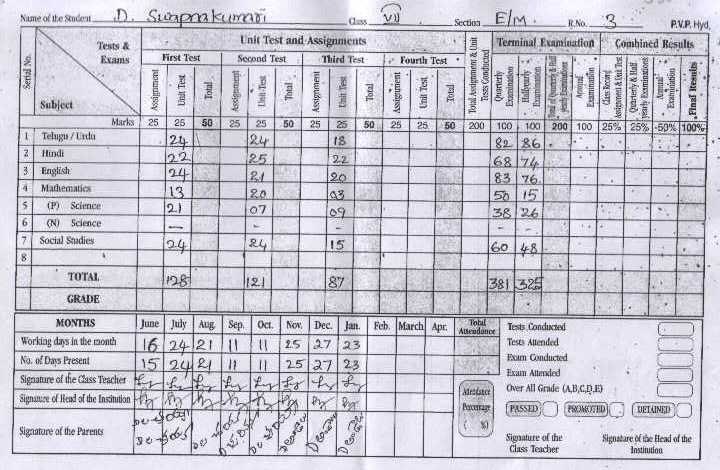 Name of the Student D. Swapnakumari Class VII Section E/M R.No. 3 P.V.P. Hyd,
Serial No. Tests & Exams Subject Unit Test and Assignments Total Assignment & Unit Tests Conducted Terminal Examination Combined Results
First Test Second Test Third Test Fourth Test
Assignment Unit Test Total Assignment Unit Test Total Assignment Unit Test Total Assignment Unit Test Total Quarterly Examination Halfyearly Examination Total of Quarterly & Half yearly Examinations Annual Examination Class Record Assignment & Unit Test Quarterly & Half yearly Examinations Annual Examination Final Results
Marks 25 25 50 25 25 50 25 25 50 25 25 50 200 100 100 200 100 25% 25% -50% 100%
1 Telugu / Urdu 24 24 18 82 86
2 Hindi 22 25 22 68 74
3 English 24 21 20 83 76
4 Mathematics 13 20 03 50 15
5 (P) Science 21 07 09 38 26
6 (N) Science — - - - -
7 Social Studies 24 24 15 60 48
8
TOTAL 128 121 87 381 325
GRADE
MONTHS June July Aug. Sep. Oct. Nov. Dec. Jan. Feb. March Apr. Total Attendance
Working days in the month 16 24 21 11 11 25 27 23
No. of Days Present 15 24 21 11 11 25 27 23
Signature of the Class Teacher
Signature of Head of the Institution
Signature of the Parents
Attendance Percentage ( %)
Tests Conducted
Tests Attended
Exam Conducted
Exam Attended
Over All Grade (A,B,C,D,E)
PASSED PROMOTED DETAINED
Signature of the Class Teacher
Signature of the Head of the Institution